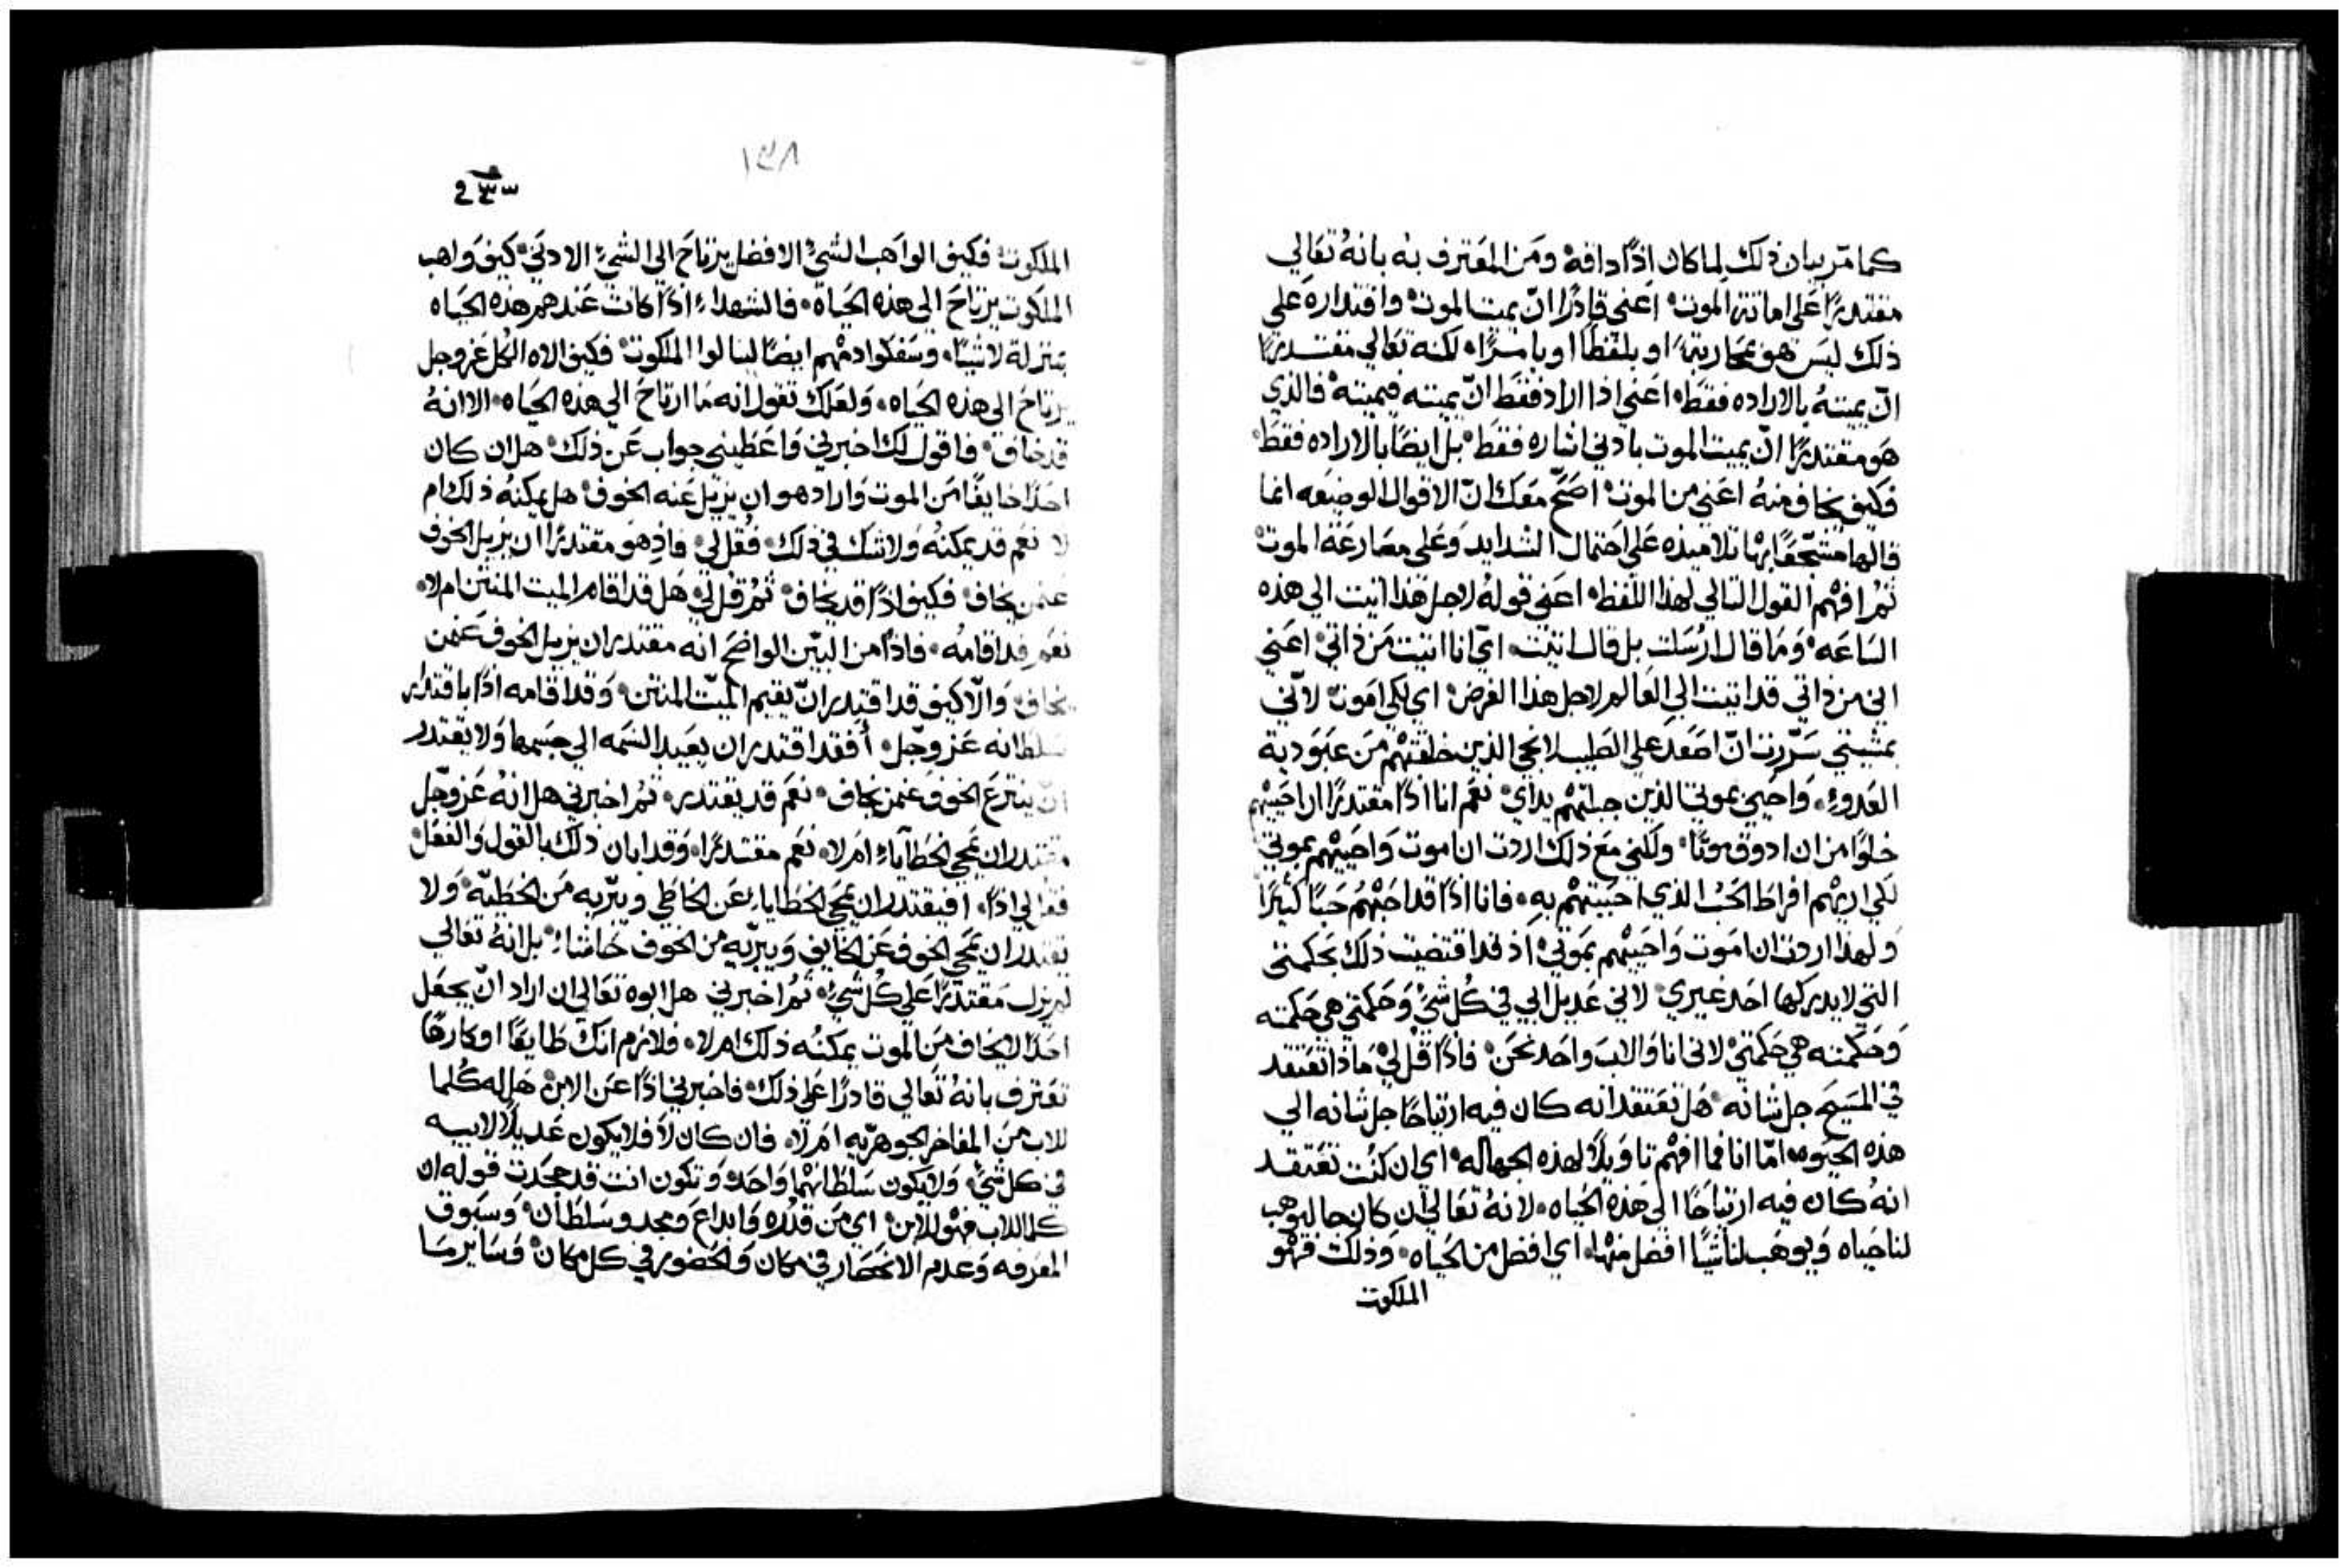 كما مر بيان ذلك لما كان اذًا دافه ومن المعترف به بانه تعالي
مقتدرًا علي اماتة الموت اعني قادرًا انّ يميت الموت واقتداره علي
ذلك ليس هو بمحاربة او بلفظًا او بامرًا لكنه تعالي مقتدرًا
انّ يميته بالاراده فقط اعني اذا اراد فقط انّ يميته فيميته فالذي
هو مقتدرًا انّ يميت الموت بادني اشاره فقط بل ايضًا بالاراده فقط
فكيف يخاف منه اعني من الموت اصَحّ معك انّ الاقوال الوضيعه انما
قالها بها تلاميذه علي احتمال الشدايد وعلي مصارعة الموت
ثم افهم القول التالي لهذا اللفظ اعني قوله لاجل هذا اتيت الي هذه
الساعه وما قال ارسلت بل قال اتيت اي انا اتيت من ذاتي اعني
اني من ذاتي قد اتيت الي العالم لاجل هذا الغرض اي لكي اموت لانّي
بمشيتي سرّرت انّ اصعد علي الصليب لانجي الذين خلقتهم من عبودية
العدوء واحيي بموتي الذين جبلتهم يداي نعم انا اذًا مقتدرًا ان احييهم
خلوًا من ان ادوق موتًا ولكني مع ذلك اردت ان اموت واحييهم بموتي
لكي اريهم افراط الحب الذي احببتهم به فانا اذًا قد احبتهم حبًا كثيرًا
ولهذا اردت ان اموت واحييهم بموتي اذ قد اقتضيت ذلك بحكمتي
التي لا يدركها احد غيري لاني عديل ابي في كل شي وحكمتي هي حكمته
وحكمته هي حكمتي لاني انا والاب واحد نحن فاذًا قل لي ماذا تعتقد
في المسيح جل شانه هل تعتقد انه كان فيه ارتياحًا جل شانه الي
هذه الحيوه امّا انا فما افهم تاويلًا لهذه الجهاله اي ان كنت تعتقد
انه كان فيه ارتياحًا الي هذه الحياه لانه تعالي ان كان حا ليوهب
لنا حياه ويوهب لنا شيًا افضل منها اي افضل من الحياه وذلك فهو
الملكوت
١٣٨
الملكوت فكيف الواهب الشي الافضل يرتاح الي الشي الادني كيف واهب
الملكوت يرتاح الي هذه الحياه فالشهداء اذًا كانت عندهم هذه الحياه
بمنزلة لا شيًا وسفكوا دمهم ايضًا لينالوا الملكوت فكيف الاه الكل عز وجل
يرتاح الي هذه الحياه ولعلك تقول انه ما ارتاح الي هذه الحياه الا انه
قد خاف فاقول لك اخبرني واعطيني جواب عن ذلك هل ان كان
احدًا خايفًا من الموت واراد هو ان يزيل عنه الخوف هل يمكنه ذلك ام
لا نعم قد يمكنه ولا شك في ذلك فقل لي فاذ هو مقتدرًا ان يزيل الخوف
عمن يخاف فكيف اذًا قد يخاف ثم قل لي هل قد اقام الميت المنتن ام لا
نعم قد اقامه فاذًا من البيّن الواضح انه مقتدر ان يزيل الخوف عمن
يخاف والّا كيف قد اقتدر انّ يقيم الميّت المنتن وقد اقامه اذًا باقتدار
سلطانه عز وجّل أفقد اقتدر ان يعيد النسمه الي جسمها ولا يقتدر
انّ ينتزع الخوف عمن يخاف نعم قد يقتدر ثم اخبرني هل انه عز وجّل
مقتدر ان يمحي الخطآياء ام لا نعم مقتدرًا وقد ابان ذلك بالقول والفعل
فقل لي اذًا افيقتدر ان يمحي الخطاياء عن الخاطي ويبّريه من الخطيّة ولا
يقتدر ان يمحي الخوف عن الخايف ويبرّيه من الخوف حاشاء بل انه تعالي
لم يزل مقتدرًا علي كل شي ثم اخبرني هل ابوه تعالي ان اراد انّ يجعل
احدًا لا يخاف من الموت يمكنه ذلك ام لا فلازم انك طايعًا او كارهًا
تعترف بانه تعالي قادرًا علي ذلك فاخبرني اذًا عن الابن هل له كلما
للاب من المفاخر الجوهريه ام لا فان كان لا فلا يكون عديلًا لابيه
في كل شي ولا يكون سلطانهما واحد وتكون انت قد جحدت قوله ان
كلما للاب فهو للابن اي من قدره وابداع ومجد وسلطان وسبوق
المعرفه وعدم الانحصار في مكان والحضور في كل مكان وساير ما